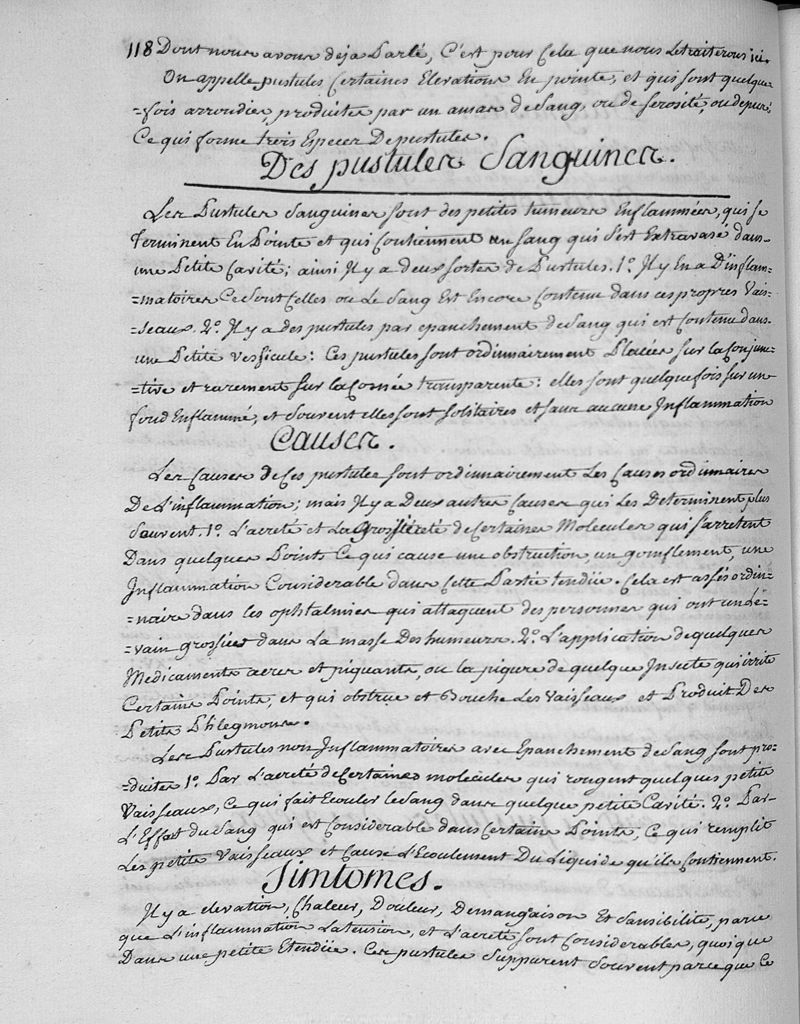 118 Dont nous avons deja Parlé, C'est pour Cela que nous Le traiterons ici.
On appelle pustules Certaines Elevations En pointe, et qui sont quelque=
=fois arrondies, produites par un amas de Sang, ou de serosité, ou de pus;
Ce qui forme trois Especes De pustules.
Des pustules Sanguines.
Les Pustules Sanguines sont des petites tumeurs Enflammées, qui se
Terminent En Pointe et qui Contiennent un sang qui s'est Extravasé dans
une Petite Cavité; ainsi Il y a deux sortes de Pustules. 1º. Il y En a D'inflam=
=matoires Ce Sont Celles ou Le Sang Est Encore Contenu dans ces propres Vais=
=seaux. 2º. Il y a des pustules par epanchement de Sang qui est Contenu dans
une Petite Vessicule: Ces pustules sont ordinnairement Placées sur la Conjunc=
=tive et rarement sur la Cornée transparente: elles sont quelque fois sur un
fond Enflammé, et Souvent elles sont solitaires et sans aucune Inflammation
Causes.
Les Causes de Ces pustules sont ordinnairement Les Causes ordinnaires
De L'inflammation; mais Il y a Deux autres Causes qui Les Determinent plus
Souvent. 1º. L'acreté et La Grossiereté de Certaines Molecules qui s'arretent
Dans quelques Points Ce qui cause une obstruction, un gonflement, une
Inflammation Considerable dans Cette Partie tendüe. Cela est assés ordin=
=naire dans les ophtalmies qui attaquent des personnes qui ont un le=
=vain grossier dans La masse Des humeurs. 2º. L'application de quelques
Medicaments acres et piquants, ou la piqure de quelque Insecte qui irrite
Certains Points, et qui obstrue et Bouche Les Vaisseaux et Produit Des
Petits Phlegmons.
Les Pustules non Inflammatoires avec Epanchement de Sang sont pro=
=duites 1º. Par L'acreté de Certaines molecules qui rongent quelques petits
Vaisseaux, Ce qui fait Ecouler le Sang dans quelque petite Cavité. 2º. Par
L'Effort du Sang qui est Considerable dans Certains Points, Ce qui remplit
Les petits Vaisseaux et Cause L'Ecoulement Du Liquide qu'ils Contiennent.
Simtomes.
Il y a elevation, Chaleur, Douleur, Demangaison Et Sensibilité, parce
que L'inflammation La tension, et L'acreté sont Considerables, quoique
Dans une petite Etendüe. Ces pustules Suppurent Souvent parce que Ce